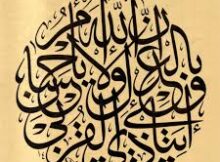 إن الله يأمر
بالعدل والإحسان
وإيتاء ذي القربى